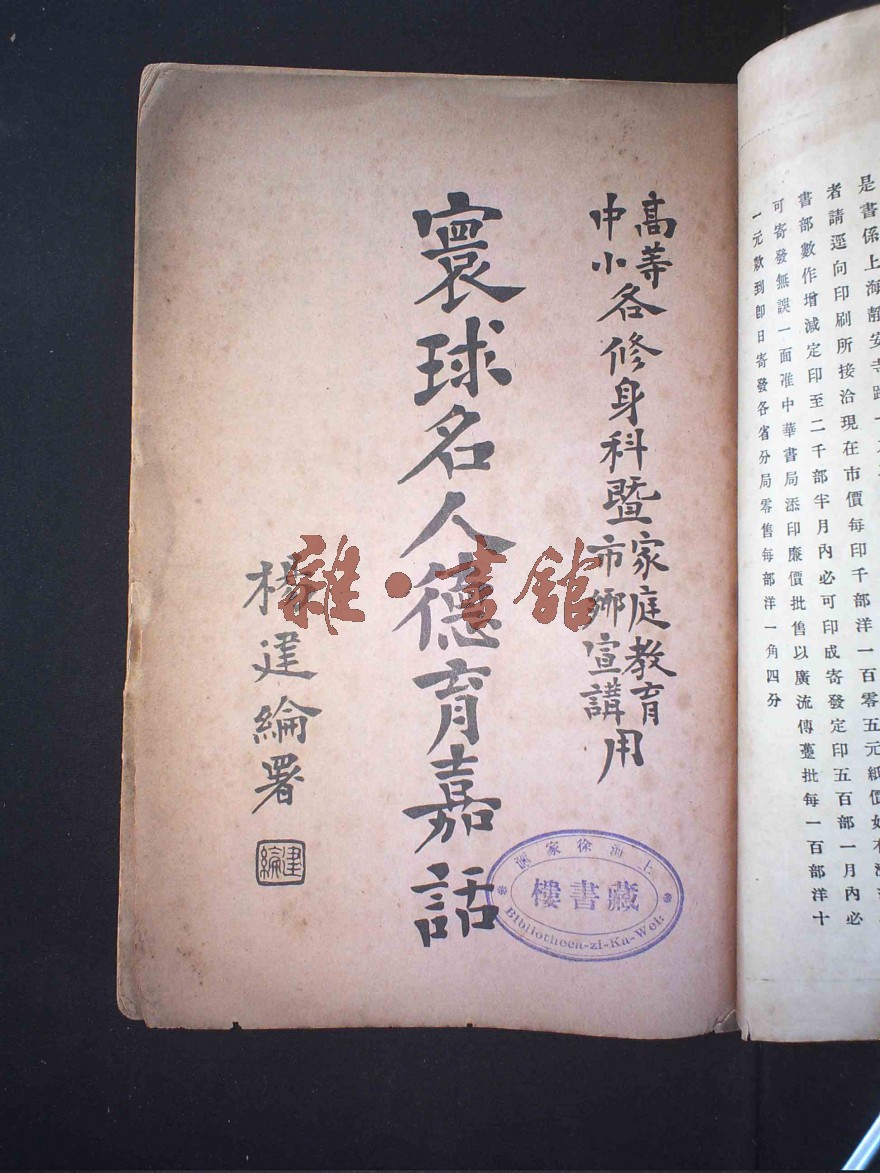 是書係上海靜安寺路
者請逕向印刷所接洽現在市價每印千部洋一百零五元紙價如有漲
書部數作增減定印至二千部半月內必可印成寄發定印五百部一月內必
可寄發無誤一面准中華書局添印廉價批售以廣流傳躉批每一百部洋十
一元款到即日寄發各省分局零售每部洋一角四分
高等
中小
各修身科暨
家庭教育
市鄉宣講
用
寰球名人德育嘉話
楊建綸署
建綸
雜·書館
上海徐家匯
藏書樓
Bibliotheca-zi-Ka-Wei